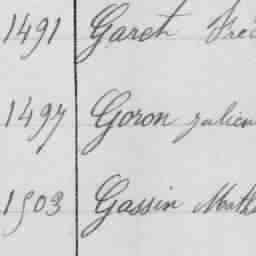 1491 Garet Fréd
1497 Goron Julien
1503 Gassin Math